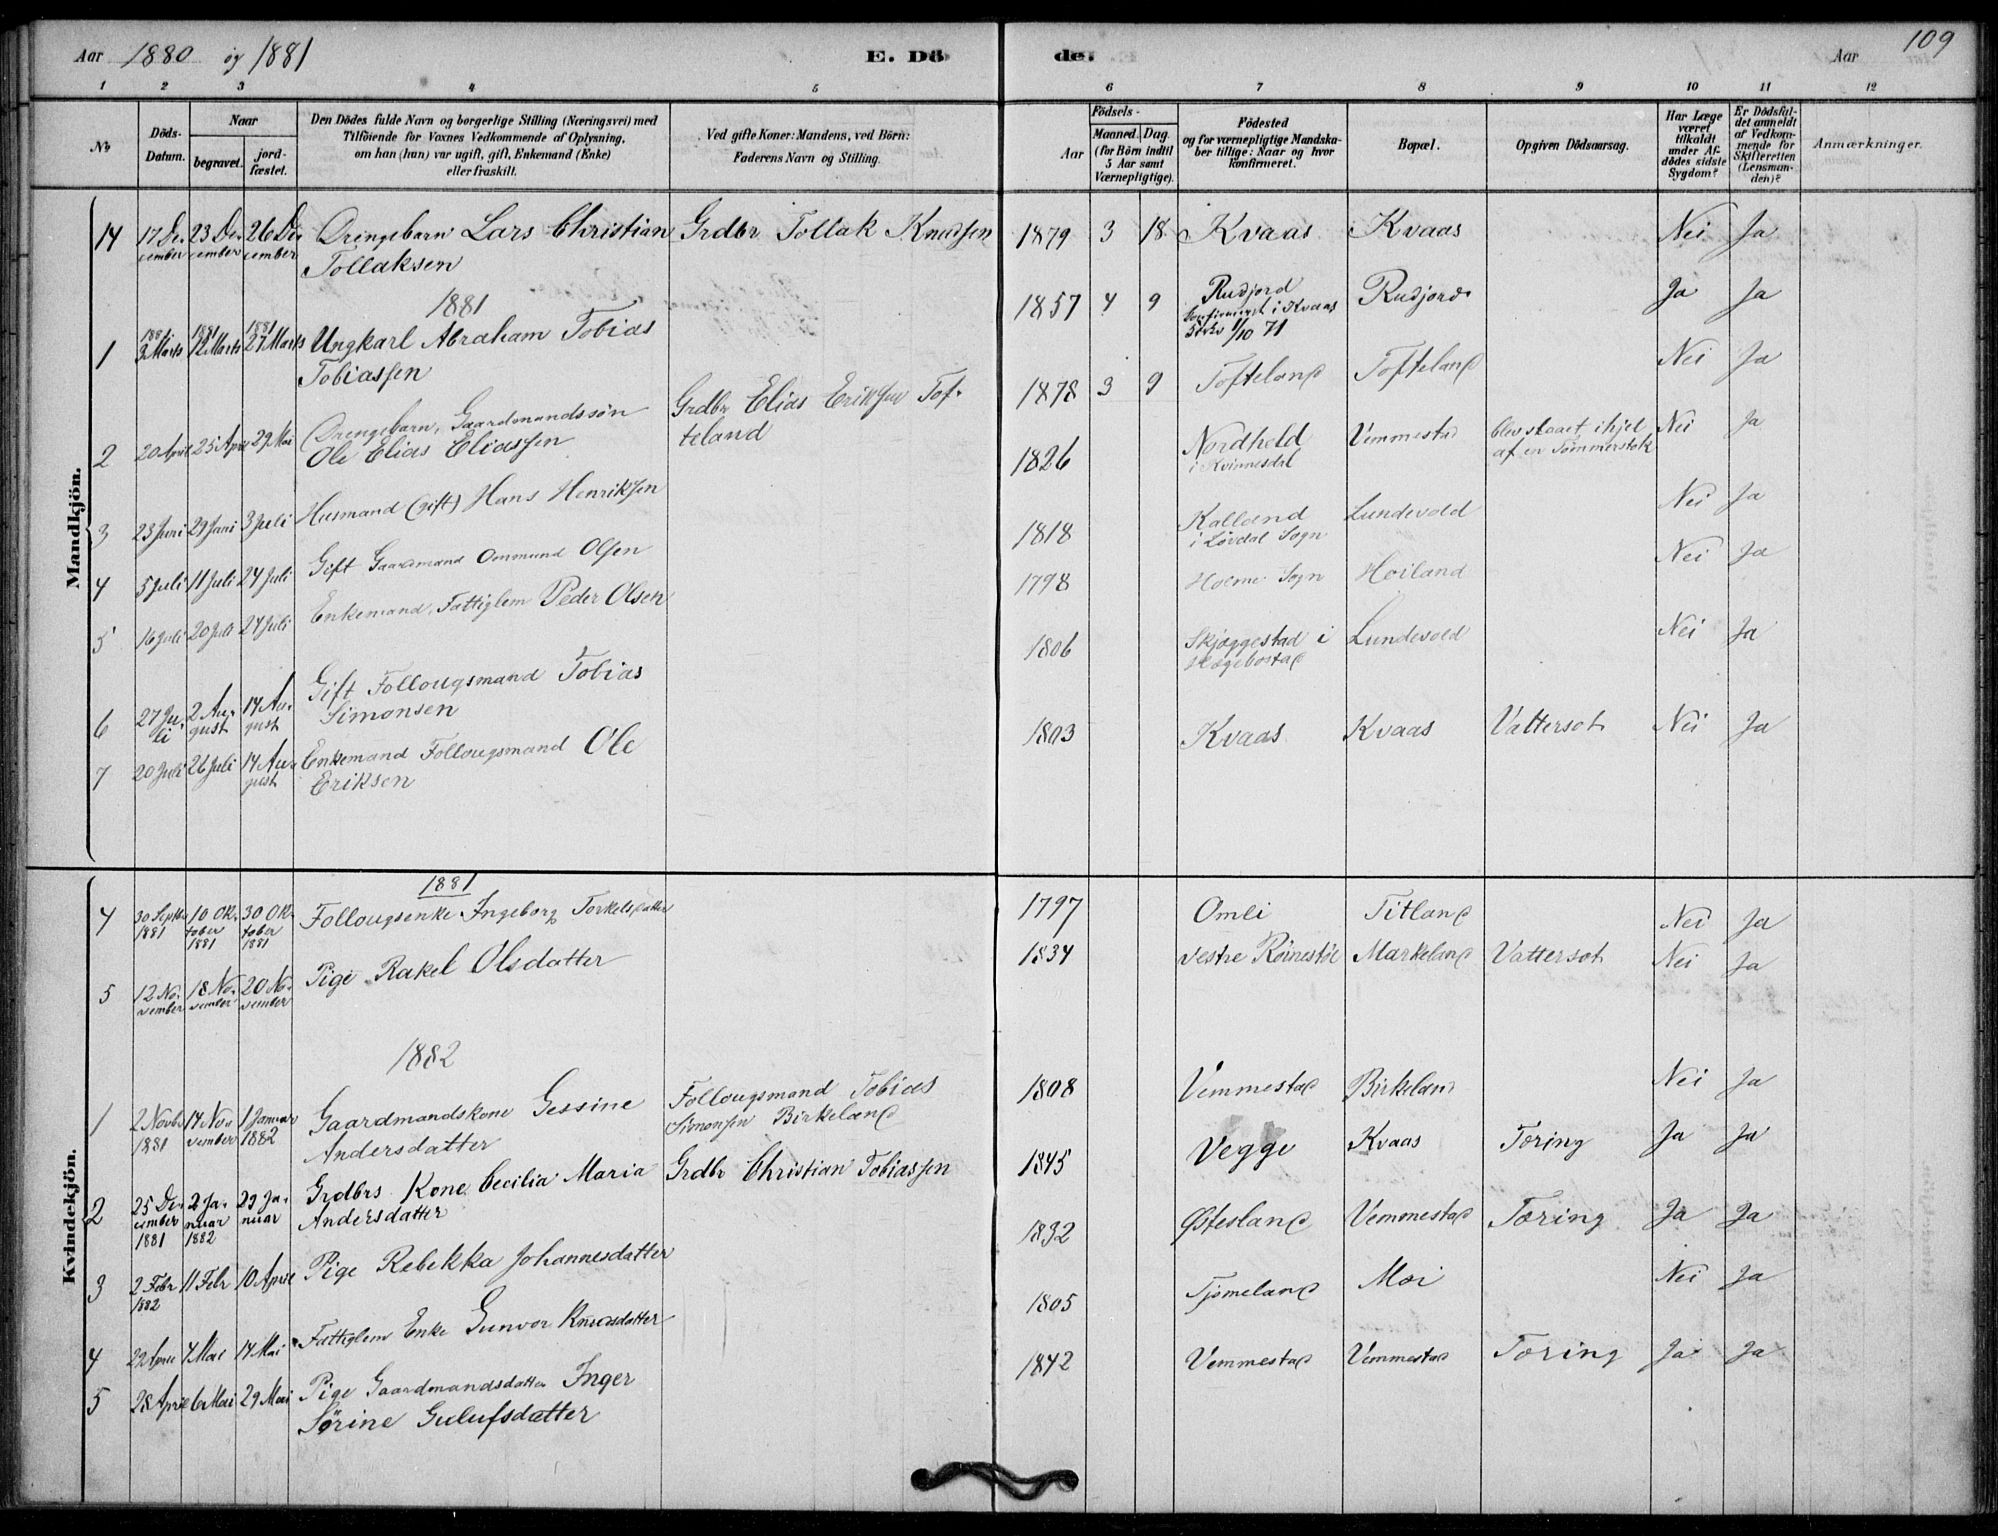 Aar 1880 og 1881 E. Dö de. Aar 109
1 2 3 4 5 6 7 8 9 10 11 12
№ Döds-Datum. Naar begravet. jordfæstet.
Den Dödes fulde Navn og borgerlige Stilling (Næringsvei) med
Tilföiende for Voxnes Vedkommende af Oplysning,
om han (hun) var ugift, gift, Enkemand (Enke)
eller fraskilt.
Ved gifte Koner: Mandens, ved Börn:
Faderens Navn og Stilling.
Födsels- Aar Maaned. Dag. (for Börn indtil 5 Aar samt Værnepligtige).
Födested og for værnepligtige Mandskaber tillige: Naar og hvor konfirmeret.
Bopæl.
Opgiven Dödsaarsag.
Har Læge været tilkaldt under Afdödes sidste Sygdom?
Er Dödsfaldet anmeldt af Vedkommende for Skifteretten (Lensmanden)?
Anmærkninger.
Mandkjön.
14 17 December 23 December 26 December Drengebarn Lars Christian Tollaksen Grdbr Tollak Knudsen 1879 3 18 Kvaas Kvaas Nei Ja
1881
1 1881 3 Marts 1881 12 Marts 1881 27 Marts Ungkarl Abraham Tobias Tobiassen 1857 4 9 Rudjord Confirmeret i Kvaas Kirke 1/10 71 Rudjord Ja Ja
2 20 April 25 April 29 Mai Drengebarn, Gaardmandssön Ole Elias Eliassen Grdbr Elias Eriksen Tofteland 1878 3 9 Tofteland Tofteland Nei Ja
3 23 Juni 29 Juni 3 Juli Husmand (gift) Hans Henriksen 1826 Nordheld i Kvinnesdal Vemmestad blev slaaet ihjel af en Tömmerstok Nei Ja
4 5 Juli 11 Juli 24 Juli Gift Gaardmand Ommund Olsen 1818 Kalland i Lövdal Sogn Lundevold Nei Ja
5 16 Juli 20 Juli 24 Juli Enkemand, Fattiglem Peder Olsen 1798 Holme Sogn Höiland Nei Ja
6 27 Juli 2 August 14 August Gift Follougsmand Tobias Simonsen 1806 Skjeggestad i Hægebostad Lundevold Nei Ja
7 20 Juli 26 Juli 14 August Enkemand Follougsmand Ole Eriksen 1803 Kvaas Kvaas Vattersot Nei Ja
Kvindekjön.
1881
4 30 Septbr 1881 10 Oktober 1881 30 Oktober 1881 Follougsenke Ingeborg Torkelsdatter 1797 Omli Titland Nei Ja
5 12 November 18 November 20 November Pige Rakel Olsdatter 1834 Vestre Rönnestöl Markeland Vattersot Nei Ja
1882
1 2 Novbr 1881 14 November 1 Januar 1882 Gaardmandskone Gessine Andersdatter Follougsmand Tobias Simonsen Birkeland 1808 Vemmestad Birkeland Nei Ja
2 25 December 1881 2 Januar 1882 29 Januar Grdbrs Kone Cecilia Maria Andersdatter Grdbr Christian Tobiassen 1845 Vegge Kvaas Tæring Ja Ja
3 2 Febr 1882 11 Febr 10 April Pige Rebekka Johannesdatter 1832 Østesland Vemmestad Tæring Ja Ja
4 29 April 7 Mai 14 Mai Fattiglem Enke Gunvor Knudsdatter 1805 Tjomeland Moi Nei Ja
5 28 April 6 Mai 29 Mai Pige Gaardmandsdatter Inger Sörine Gulufsdatter 1842 Vemmestad Vemmestad Tæring Ja Ja